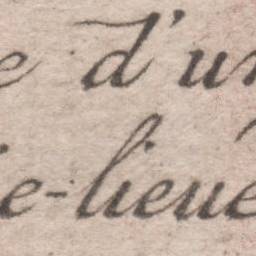 e d'un
ie-lieue